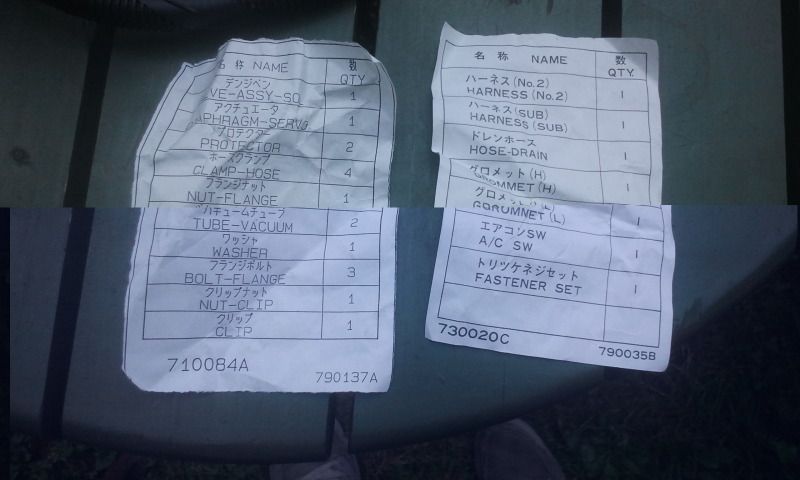 名 称 NAME 数 QTY.
デンジベン
VE-ASSY-SO 1
アクチュエータ
APHRAGM-SERVO 1
プロテクター
PROTECTOR 2
ホースクランプ
CLAMP-HOSE 4
フランジナット
NUT-FLANGE 1
バキュームチューブ
TUBE-VACUUM 2
ワッシャ
WASHER 1
フランジボルト
BOLT-FLANGE 3
クリップナット
NUT-CLIP 1
クリップ
CLIP 1
710084A
790137A
名 称 NAME 数 QTY.
ハーネス(No.2)
HARNESS(No.2) 1
ハーネス(SUB)
HARNESS(SUB) 1
ドレンホース
HOSE-DRAIN 1
グロメット(H)
GROMMET(H) 1
グロメット(L)
GORUMNET(L) 1
エアコンSW
A/C SW 1
トリツケネジセット
FASTENER SET 1
730020C
790035B